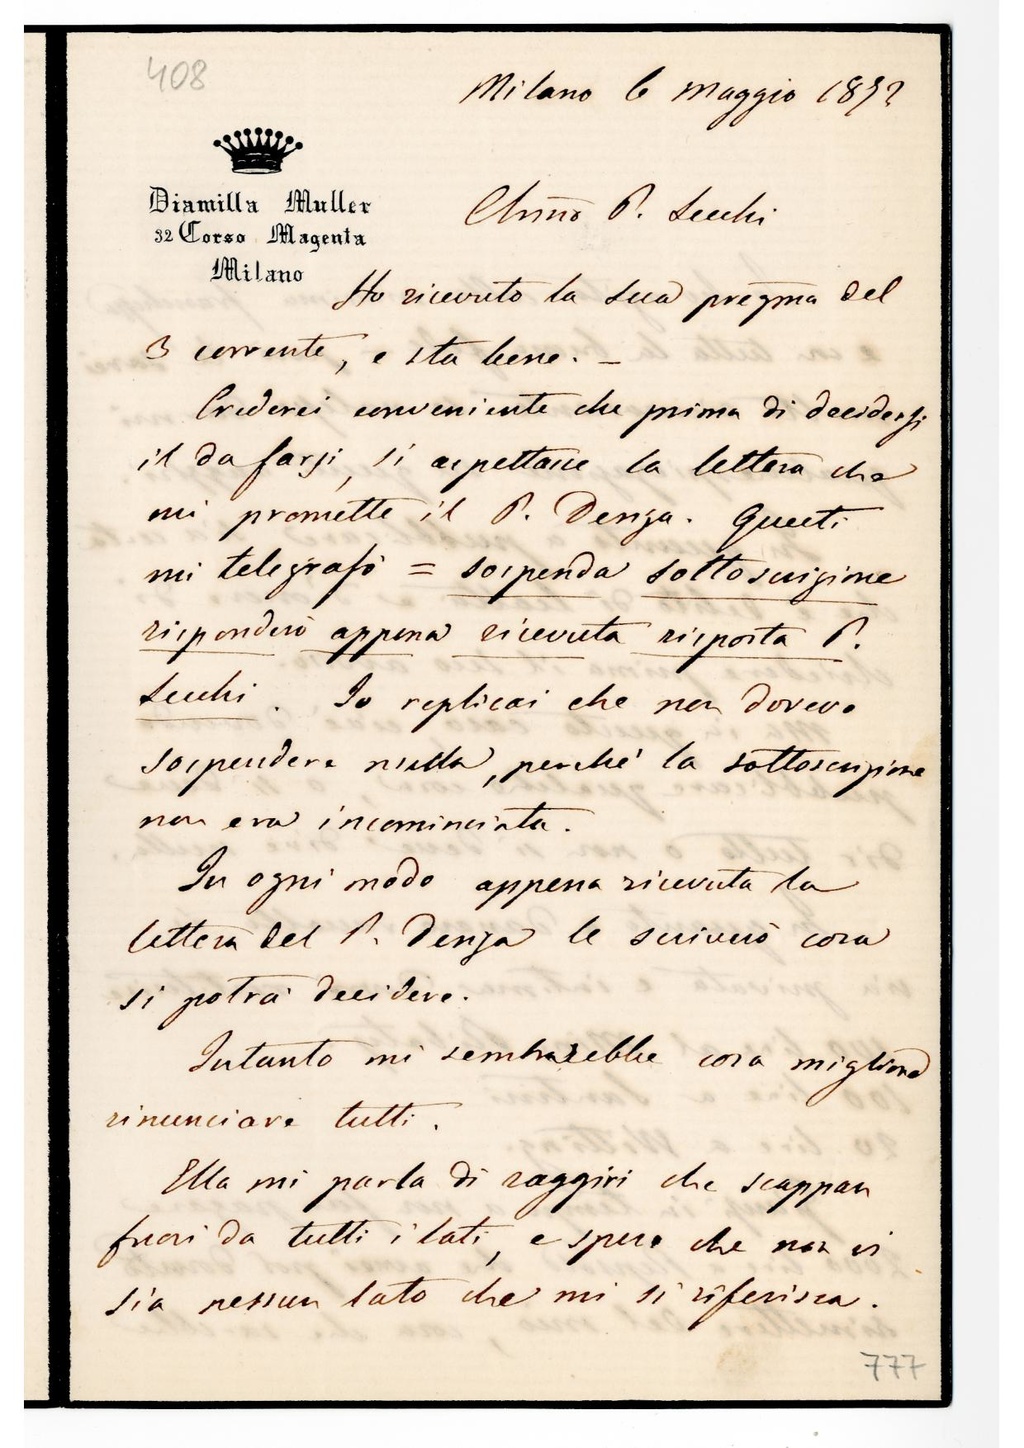 408
Milano 6 maggio 1872
Diamilla Muller
32 Corso Magenta
Milano
Chiṁo P. Secchi
Ho ricevuto la sua pregṁa del
3 corrente, e sta bene. –
Crederei conveniente che prima di decidersi
il da farsi, si aspettasse la lettera che
mi promette il P. Denza. Questi
mi telegrafò = sospenda sottoscrizione
risponderò appena ricevuta risposta P.
Secchi. Io replicai che non dovevo
sospendere nulla, perchè la sottoscrizione
non era incominciata.
In ogni modo appena ricevuta la
lettera del P. Denza le scriverò cosa
si potrà decidere.
Intanto mi sembrarebbe cosa migliore
rinunciare tutti.
Ella mi parla di raggiri che scappan
fuori da tutti i lati, e spero che non vi
sia nessun lato che mi si riferisca.
777